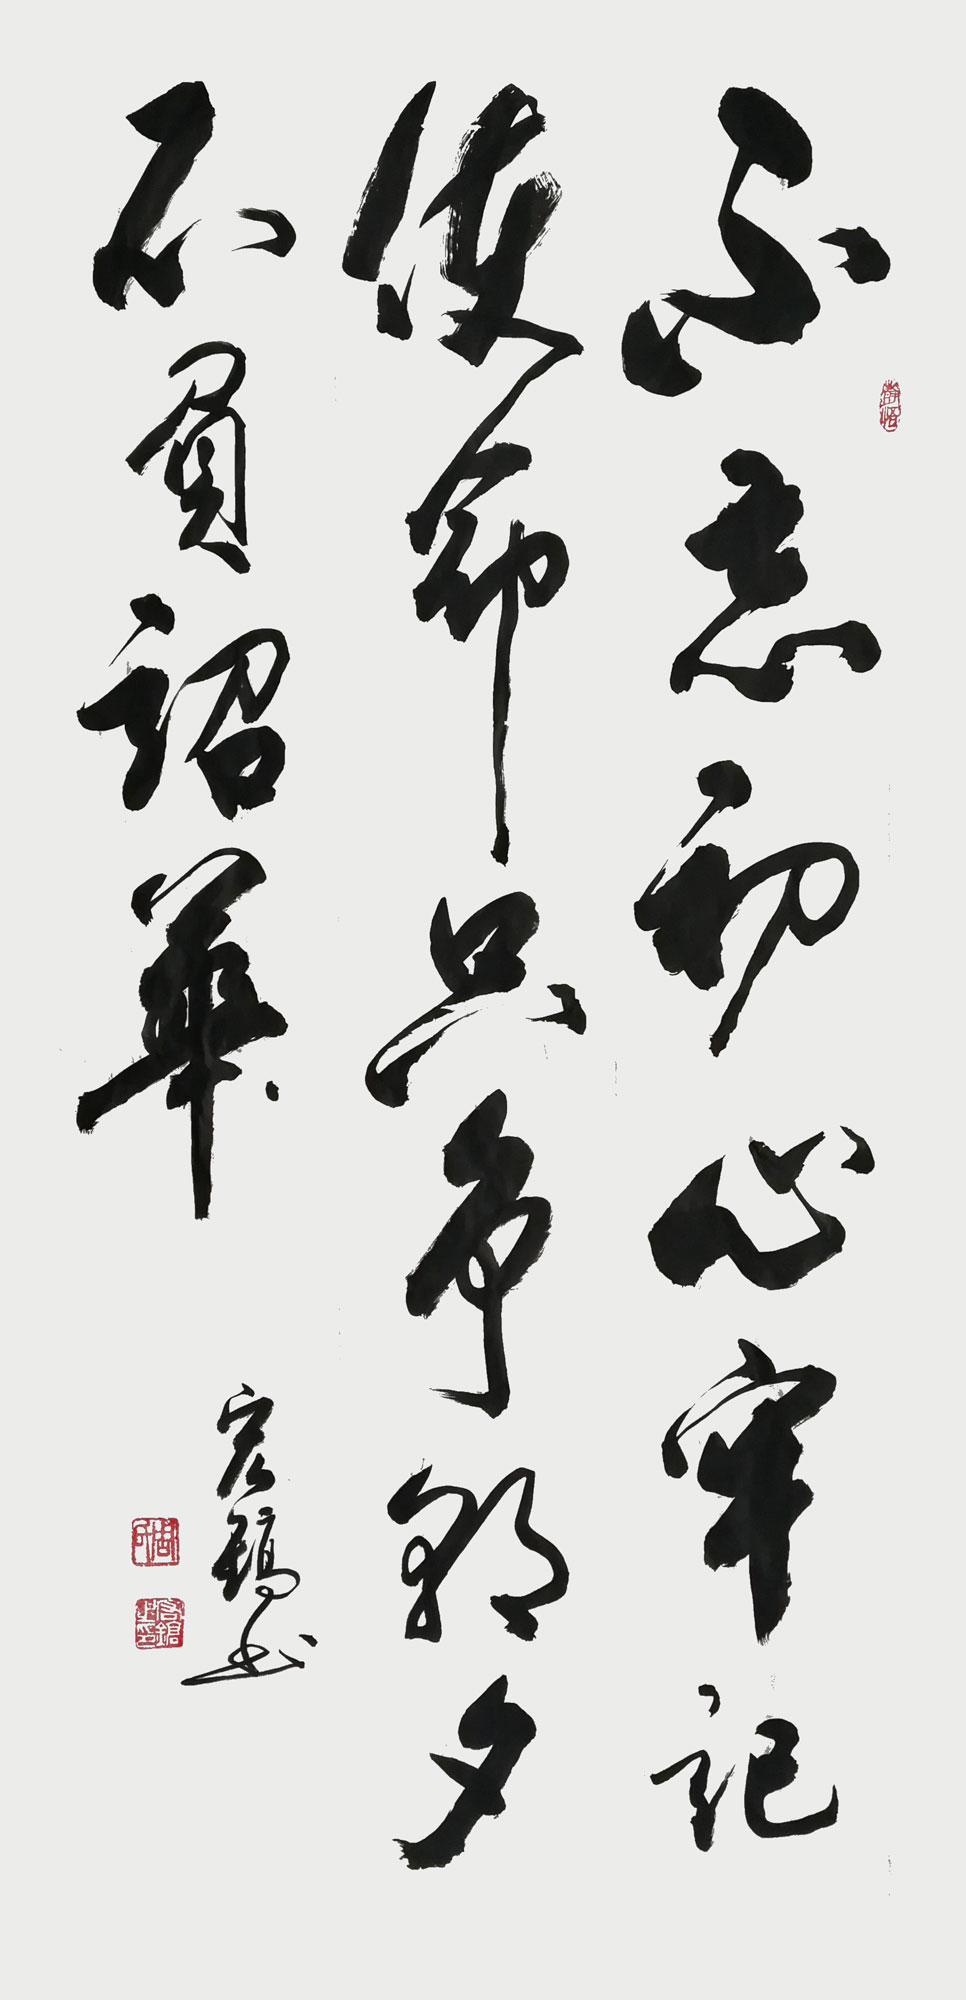 不忘初心牢记
使命只争朝夕
不负韶华
宏镐书